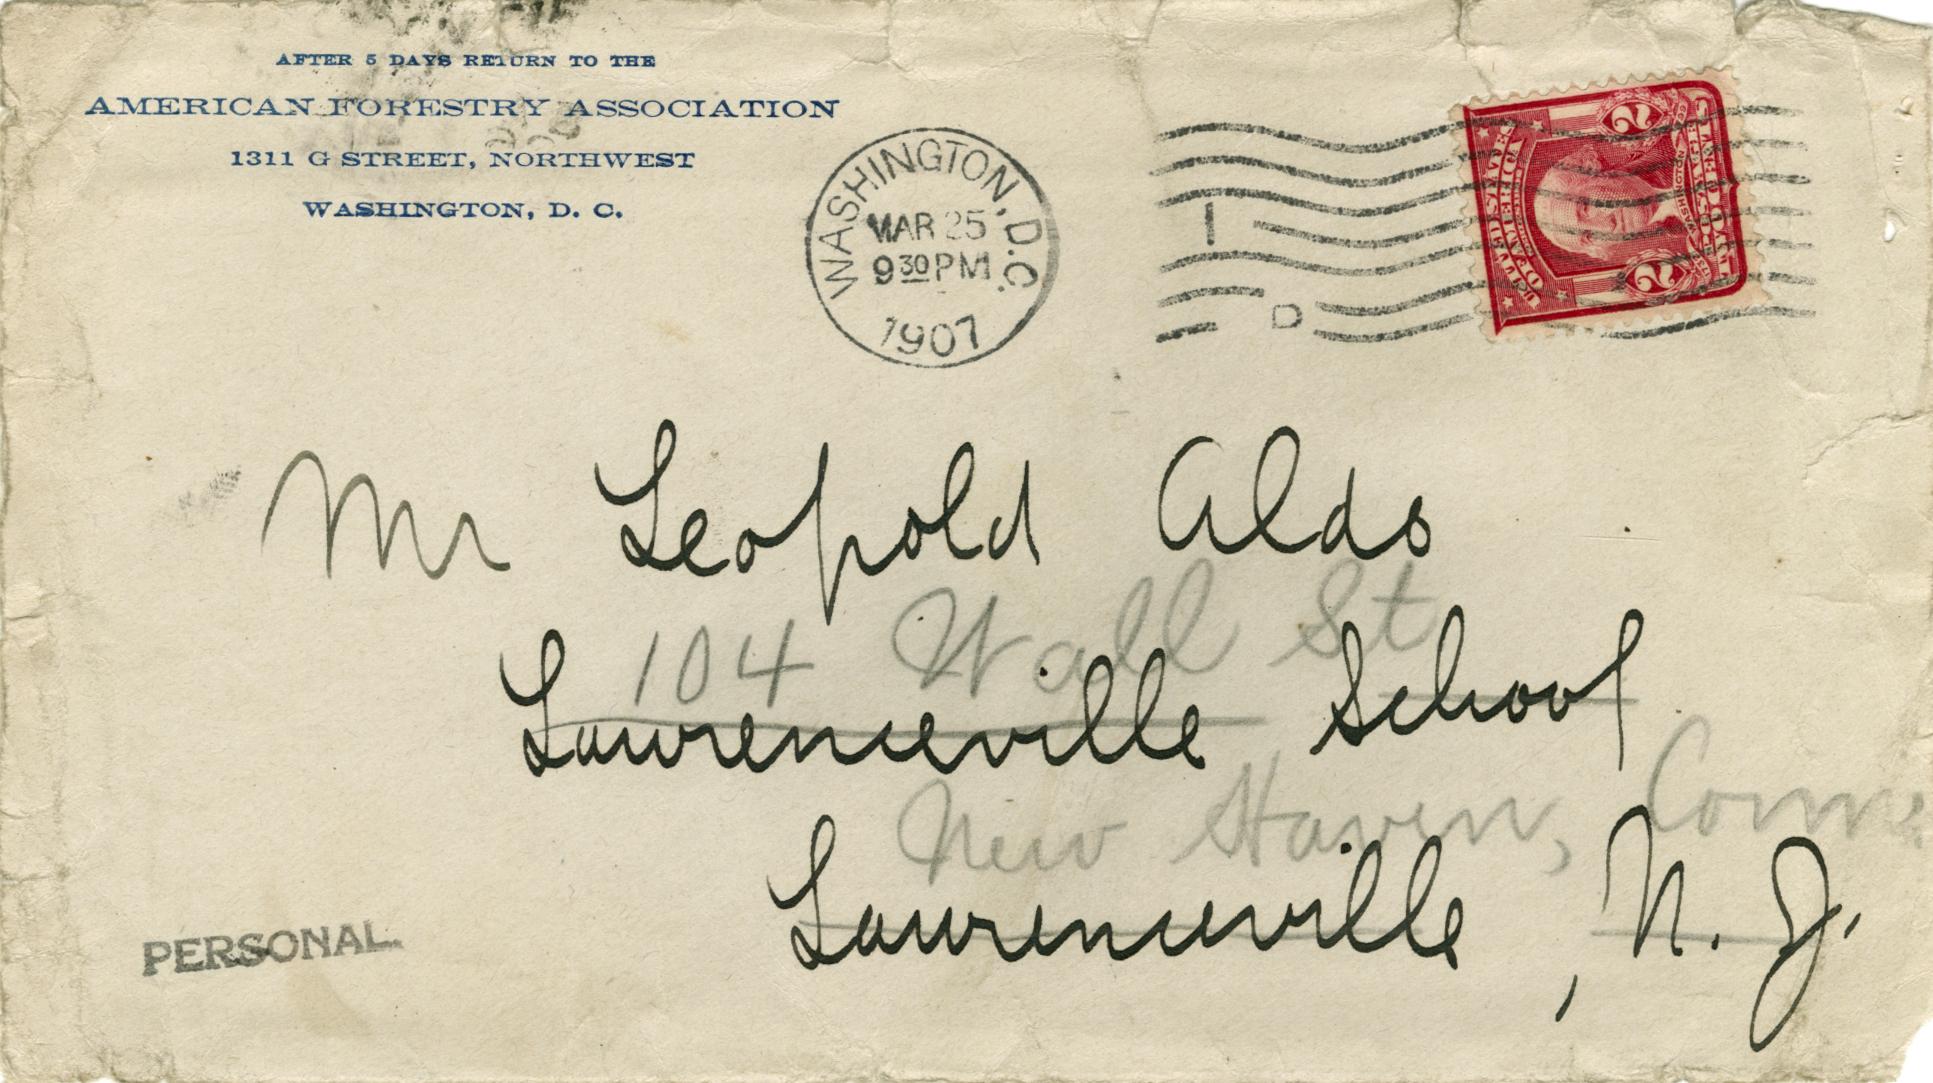 AFTER 5 DAYS RETURN TO THE
AMERICAN FORESTRY ASSOCIATION
1311 G STREET, NORTHWEST
WASHINGTON, D. C.
WASHINGTON, D.C.
MAR 25
9 30 PM
1907
1
D
2 2
UNITED STATES OF AMERICA
WASHINGTON
Mr Leopold Aldo
104 Wall St
Lawrenceville School
New Haven, Conn.
Lawrenceville, N. J.
PERSONAL.